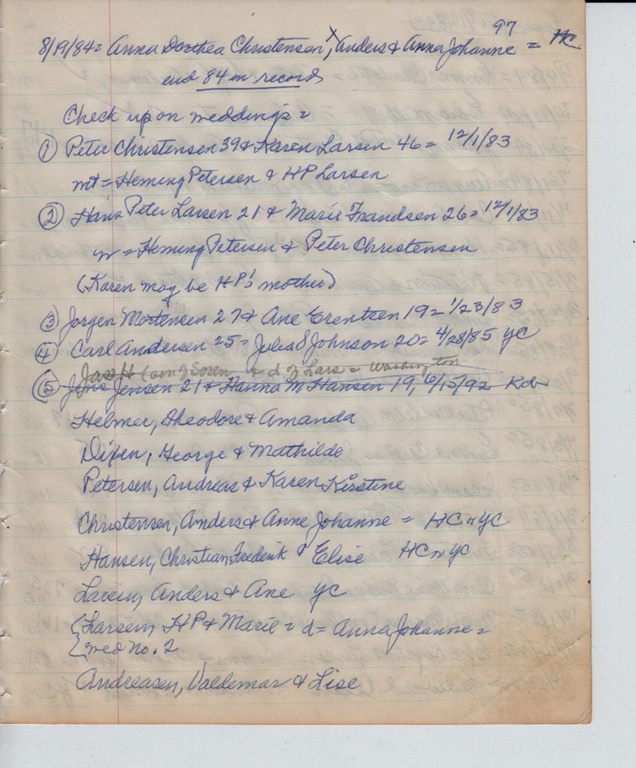 97
8/19/84 = Anna Dorthea Christensen, x Anders & Anna Johanne = HC
end 84 in record
Check up on weddings =
① Peter Christensen 39 & Karen Larsen 46 = 12/1/83
mt = Heming Petersen & HP Larsen
② Hans Peter Larsen 21 & Marie Frandsen 26 = 12/1/83
w = Heming Petersen & Peter Christensen
(Karen may be HP's mother)
③ Jorgen Mortensen 27 & Ane Erentzen 19 = 1/23/83
④ Carl Andersen 25 = Julia S Johnson 20 = 4/28/85 YC
Jas H (son of Soren & d of Lars = Washington
⑤ Jens Jensen 21 & Hanna M Hansen 19, 6/15/92
Helmer, Theodore & Amanda
Dixen, George & Mathilde
Petersen, Andreas & Karen Kirstine
Christensen, Anders & Anne Johanne = HC n YC
Hansen, Christian Frederik & Elise HC n YC
Larsen, Anders & Ane YC
{Larsen, HP & Marie = d = Anna Johanne =
{wed no. 2
Andreasen, Valdemar & Lise